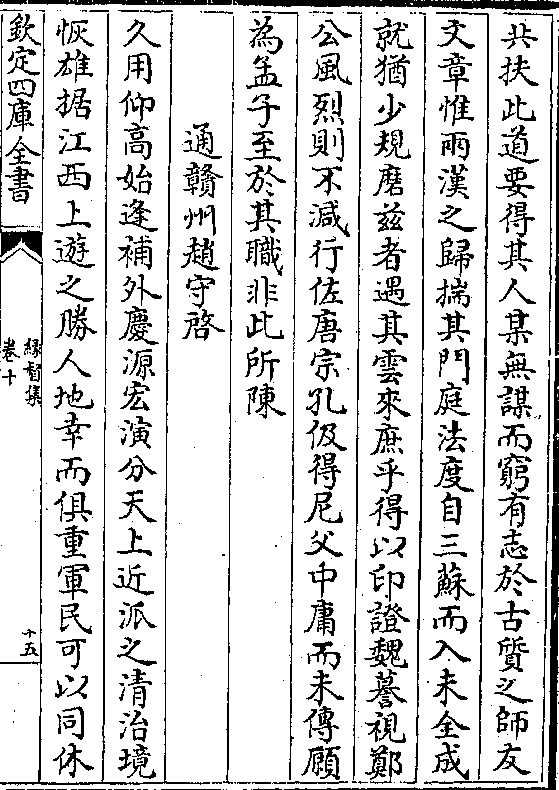 共扶此道要得其人某無謀而窮有志於古質之師友
文章惟兩漢之歸揣其門庭法度自三蘇而入未全成
就猶少規磨兹者遇其雲來庶乎得以印證魏謩視鄭
公風烈則不減行佐唐宗孔伋得尼父中庸而未傳願
為孟子至於其職非此所陳
通贛州趙守啓
久用仰高始逢補外慶源宏演分天上近派之清治境
恢雄据江西上遊之勝人地幸而俱重軍民可以同休
欽定四庫全書
緣督集
卷十
十五